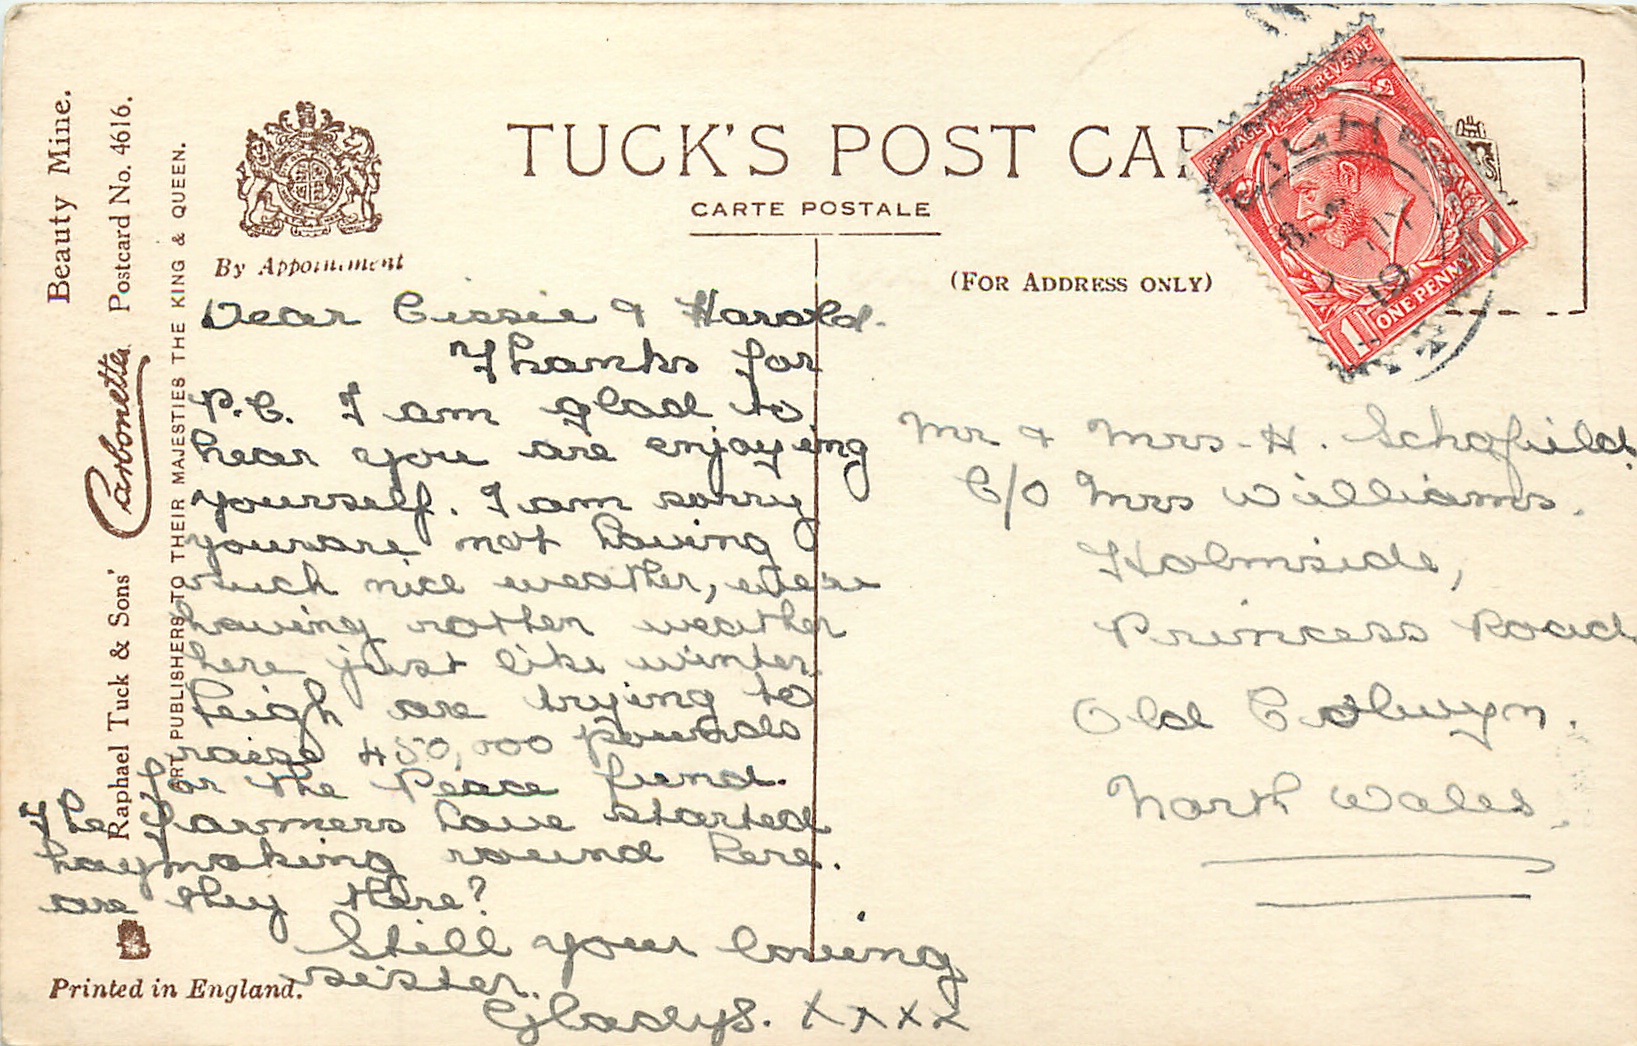 Beauty Mine.
Postcard No. 4616.
Raphael Tuck & Sons' Carbonette
ART PUBLISHERS TO THEIR MAJESTIES THE KING & QUEEN.
By Appointment
TUCK'S POST CAR
CARTE POSTALE
(FOR ADDRESS ONLY)
REVENUE
LEIGH
19
1 ONE PENNY 1
Dear Cissie & Harold.
Thanks for
P.C. I am glad to
hear you are enjoying
yourself. I am sorry
you are not having
much nice weather, were
having rotten weather
here just like winter.
Leigh are trying to
raise 450,000 pounds
for the Peace fund.
The farmers have started
haymaking round here.
are they there?
Still your loving
sister.
Gladys. xxxx
Mr & Mrs. H. Schofield.
C/O Mrs Williams.
Holmside,
Princess Road
Old Colwyn.
North Wales.
Printed in England.